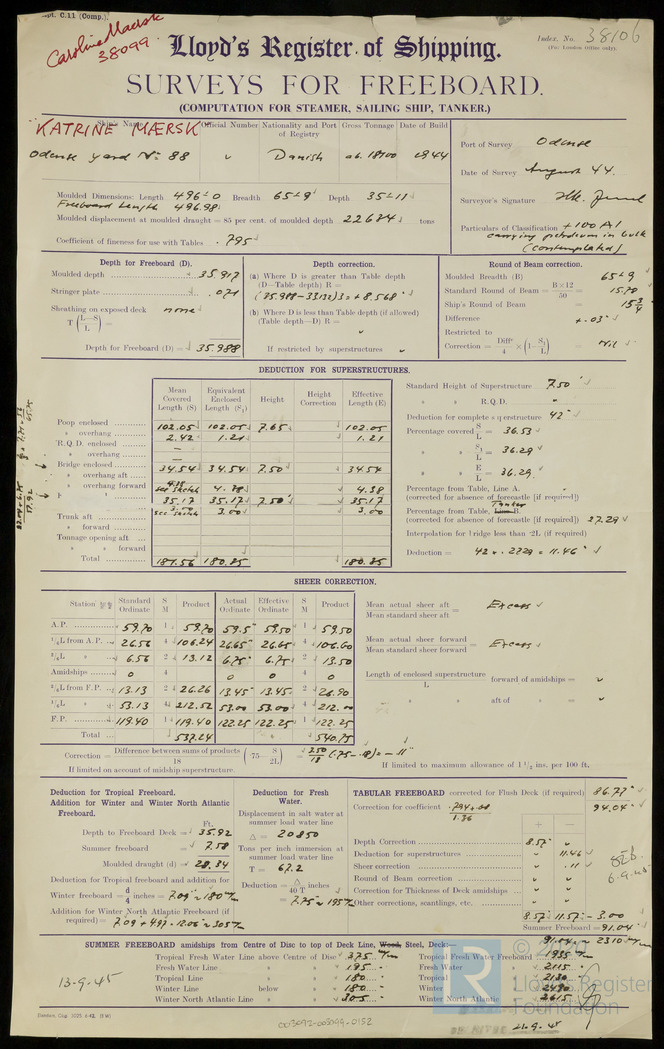 pt. C.11 (Comp.).
Caroline Maersk
38099
Index. No. 38106
(For London Office only).
Lloyd's Register of Shipping.
SURVEYS FOR FREEBOARD.
(COMPUTATION FOR STEAMER, SAILING SHIP, TANKER.)
Ship's Name Official Number Nationality and Port of Registry Gross Tonnage Date of Build
KATRINE MÆRSK
Odense yard No. 88 Danish 1944
Port of Survey Odense
Date of Survey August 44.
Surveyor's Signature
Particulars of Classification +100 A1
carrying petroleum in bulk
(contemplated)
Moulded Dimensions: Length 496-0 Breadth 65-9 Depth 35-11
Freeboard Length 496.98
Moulded displacement at moulded draught = 85 per cent. of moulded depth 22684 tons
Coefficient of fineness for use with Tables .795
Depth for Freeboard (D).
Moulded depth 35.917
Stringer plate .071
Sheathing on exposed deck none
T (L—S / L) =
Depth for Freeboard (D) = 35.988
Depth correction.
(a) Where D is greater than Table depth
(D—Table depth) R =
(35.988-33.132)3 = +8.568"
(b) Where D is less than Table depth (if allowed)
(Table depth—D) R =
If restricted by superstructures
Round of Beam correction.
Moulded Breadth (B) 65-9
Standard Round of Beam = B×12 / 50 = 15.78
Ship's Round of Beam = 15 3/4
Difference +.03
Restricted to
Correction = Diff / 4 × (1— S1 / L) = Nil
DEDUCTION FOR SUPERSTRUCTURES.
Mean Covered Length (S) Equivalent Enclosed Length (S1) Height Height Correction Effective Length (E)
Poop enclosed 102.05 102.05 7.65 102.05
" overhang 2.42 1.21 1.21
R.Q.D. enclosed —
" overhang —
Bridge enclosed 34.54 34.54 7.50 34.54
" overhang aft
" overhang forward 4.38 see sketch 4.38 4.38
F 35.17 35.17 7.50 35.17
see sketch 3.00 3.00
Trunk aft
" forward
Tonnage opening aft
" " forward
Total 181.56 180.35 180.35
Standard Height of Superstructure 7.50
" " R.Q.D.
Deduction for complete superstructure 42"
Percentage covered S / L = 36.53
" " S1 / L = 36.29
" " E / L = 36.29
Percentage from Table, Line A.
(corrected for absence of forecastle (if required))
Percentage from Table, Line B. Tanker
(corrected for absence of forecastle (if required)) 27.29
Interpolation for bridge less than ·2L (if required)
Deduction = 42 × .2729 = 11.46"
SHEER CORRECTION.
Station Standard Ordinate S M Product Actual Ordinate Effective Ordinate S M Product
A.P. 59.70 1 59.70 59.5 59.50 1 59.50
1/6L from A.P. 26.56 4 106.24 26.65 26.65 4 106.60
2/6L " 6.56 2 13.12 6.75 6.75 2 13.50
Amidships 0 4 0 0 4 0
2/6L from F.P. 13.13 2 26.26 13.45 13.45 2 26.90
1/6L " 53.13 4 212.52 53.00 53.00 4 212.00
F.P. 119.40 1 119.40 122.25 122.25 1 122.25
Total 537.24 540.75
Mean actual sheer aft / Mean standard sheer aft = Excess
Mean actual sheer forward / Mean standard sheer forward = Excess
Length of enclosed superstructure / L forward of amidships =
" " aft of " =
Correction = Difference between sums of products / 18 (·75— S / 2L) = 3.50 / 18 (.75-.18) = -.11"
If limited on account of midship superstructure.
If limited to maximum allowance of 1 1/2 ins. per 100 ft.
Deduction for Tropical Freeboard.
Addition for Winter and Winter North Atlantic Freeboard.
Ft.
Depth to Freeboard Deck = 35.92
Summer freeboard = 7.58
Moulded draught (d) = 28.34
Deduction for Tropical freeboard and addition for
Winter freeboard = d / 4 inches = 7.09" = 180 m/m
Addition for Winter North Atlantic Freeboard (if required) = 7.09 + 4.97 = 12.06 = 305 m/m
Deduction for Fresh Water.
Displacement in salt water at summer load water line
Δ = 20850
Tons per inch immersion at summer load water line
T = 67.2
Deduction = Δ / 40 T inches
= 7.75" = 195 m/m
TABULAR FREEBOARD corrected for Flush Deck (if required) 86.77"
Correction for coefficient .794+.68 / 1.36 94.04"
+ −
Depth Correction 8.57
Deduction for superstructures 11.46
Sheer correction .11
Round of Beam correction
Correction for Thickness of Deck amidships
Other corrections, scantlings, etc.
8.57 11.57 -3.00
Summer Freeboard = 91.04"
6.9.45
SUMMER FREEBOARD amidships from Centre of Disc to top of Deck Line, Wood, Steel, Deck:— 91.04" = 2310 m/m
Tropical Fresh Water Line above Centre of Disc 375 m/m Tropical Fresh Water Freeboard 1935 m/m
Fresh Water Line " " 195 Fresh Water " 2115
Tropical Line " " 180 Tropical " 2130
Winter Line below " 180 Winter " 2490
Winter North Atlantic Line " " 305 Winter North Atlantic " 2615
13-9-45
003092-003099-0152
© 2020
Lloyd's Register
Foundation